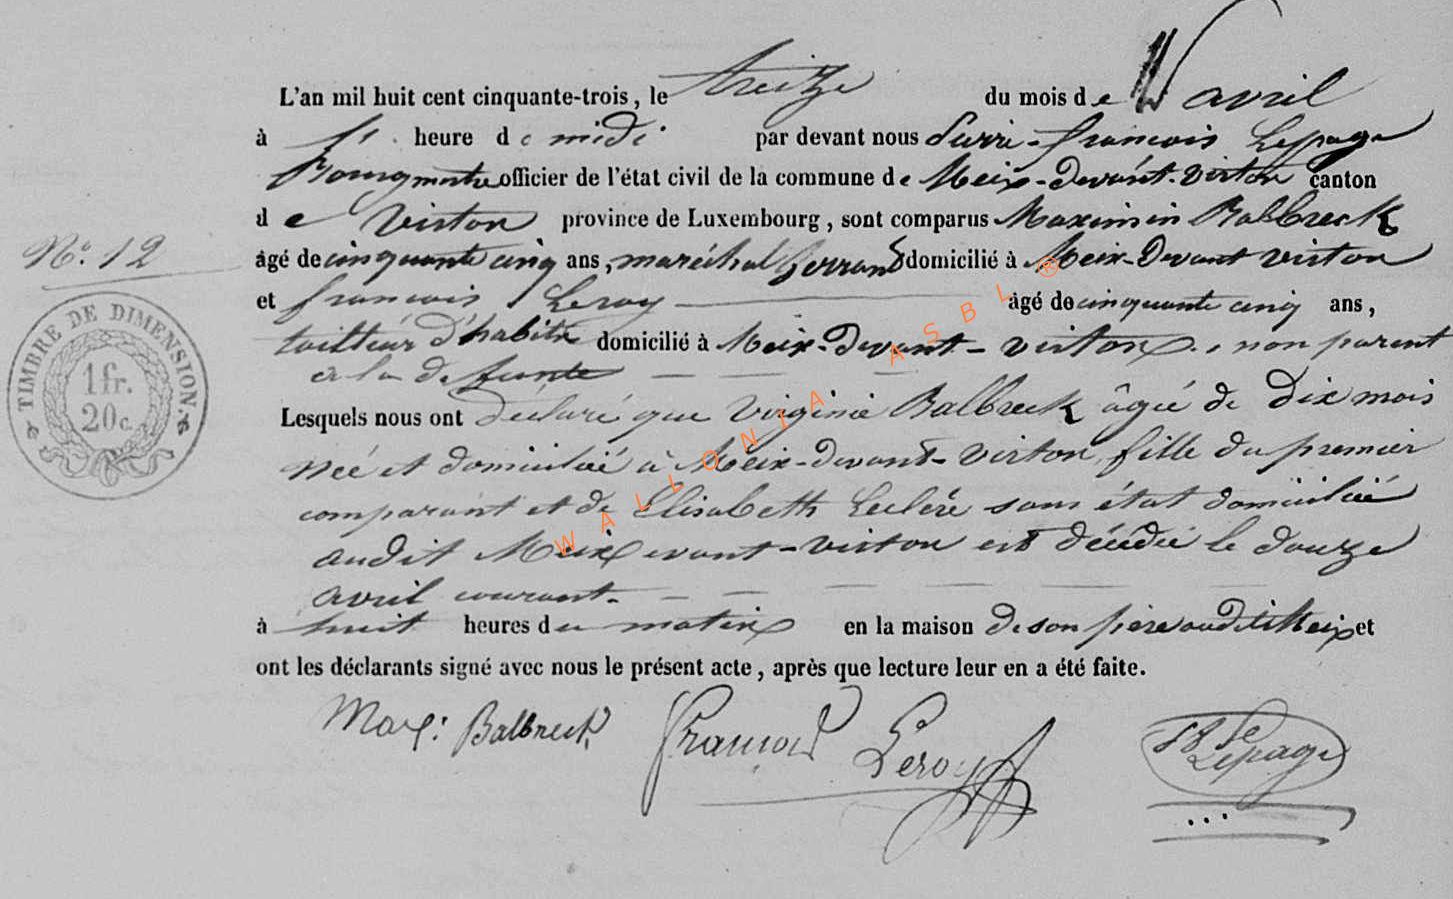 L'an mil huit cent cinquante-trois, le treize du mois de avril
à heure de midi par devant nous françois Lepage
Bourgmestre officier de l'état civil de la commune de Meix-devant-virton canton
de Virton province de Luxembourg, sont comparus Maximin Balbreck
âgé de cinquante cinq ans, maréchal ferrant domicilié à Meix-devant virton
N.° 12
et françois Leroy âgé de cinquante cinq ans,
tailleur d'habits domicilié à Meix-devant-virton, non parent
à la defunte
Lesquels nous ont déclaré que Virginie Balbreck âgée de Dix mois
née et domiciliée à Meix-devant-virton, fille du premier
comparant et de Elisabeth Leclére sans état domiciliée
audit Meix devant-virton est décédée le douze
avril courant
à huit heures du matin en la maison de son père audit Meix et
ont les déclarants signé avec nous le présent acte, après que lecture leur en a été faite.
Max: Balbreck françois Leroy Lepage
TIMBRE DE DIMENSION.
1 fr.
20 c.
WALLONIA ASBL ®